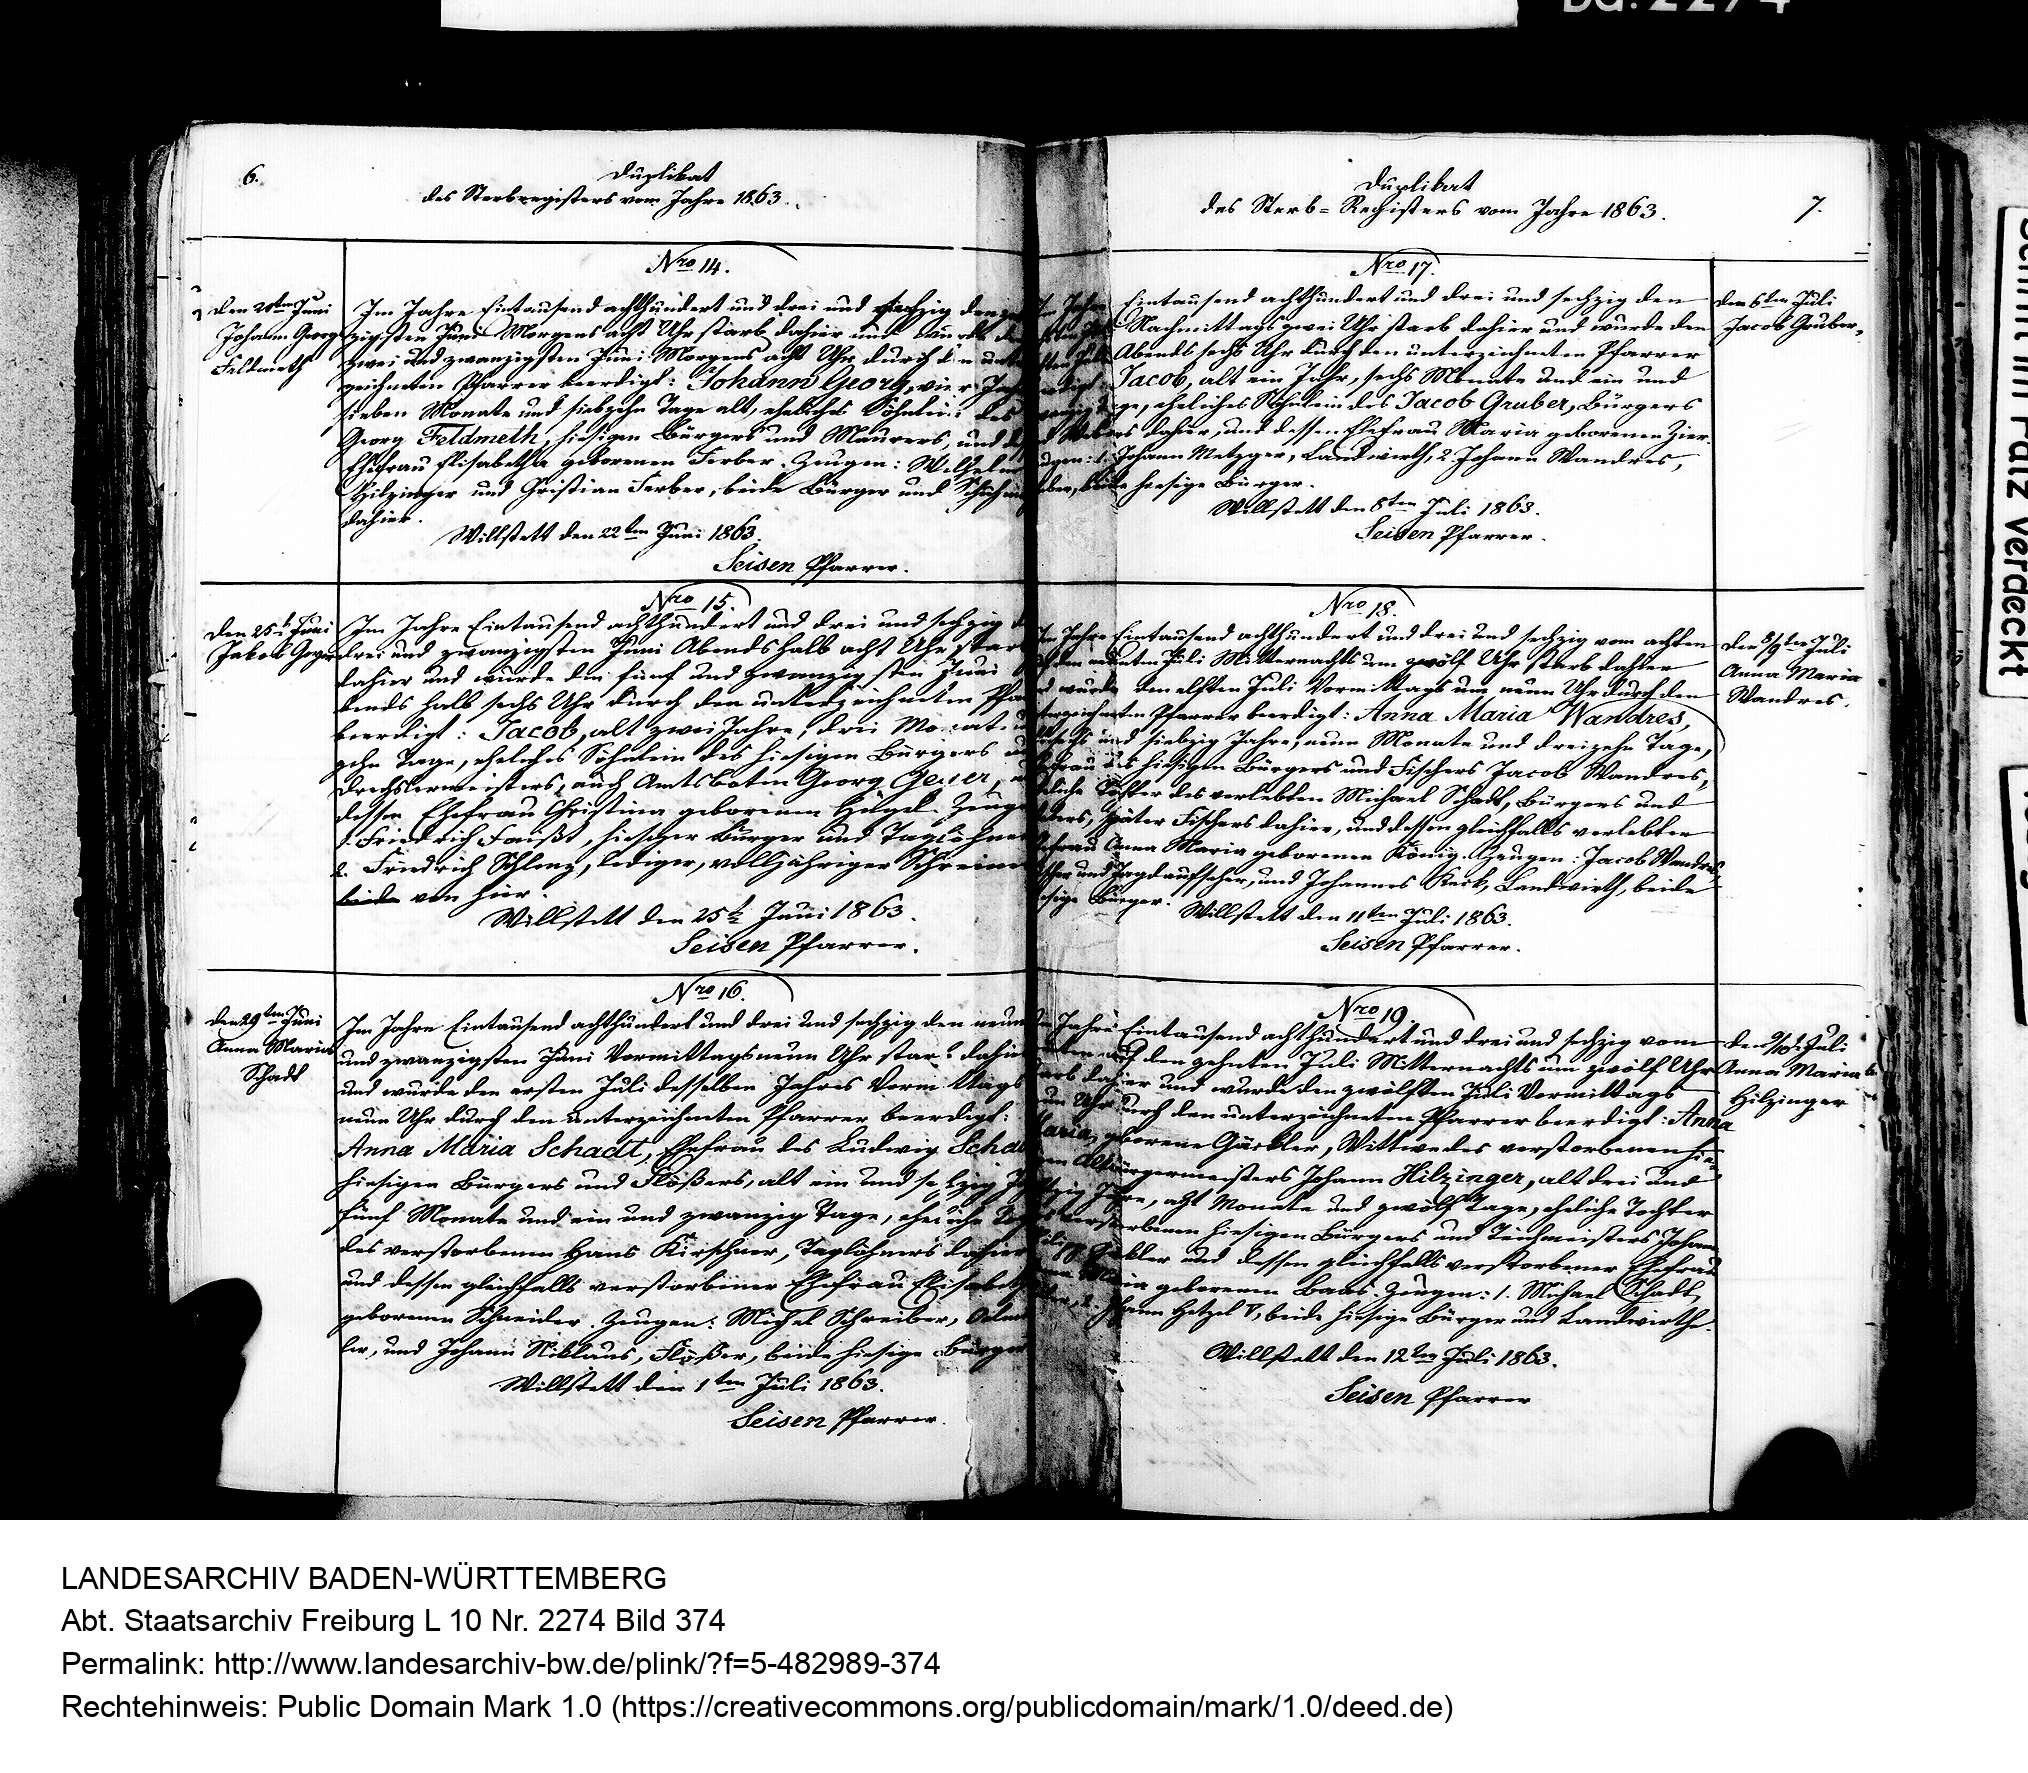 Bd. 2274
6.
Duplikat
des Sterbregisters vom Jahre 1863.
Nro 14.
den 20ten Juni
Johann Georg
Feldmeth
Im Jahre Eintausend achthundert und drei und sechzig den
zigsten Juni Morgens acht Uhr starb dahier und wurde den
zwei und zwanzigsten Juni Morgens acht Uhr durch den unter
zeichneten Pfarrer beerdigt: Johann Georg, vier Jahre
sieben Monate und siebzehn Tage alt, eheliches Söhnlein des
Georg Feldmeth, hiesigen Bürgers und Maurers, und
Ehefrau Elisabetha geborenen Ferber. Zeugen: Wilhelm
Hilzinger und Christian Ferber, beide Bürger und
dahier.
Willstett den 22ten Juni 1863.
Seisen Pfarrer.
Nro 15.
den 25t Juni
Jakob Geyer
Im Jahre Eintausend achthundert und drei und sechzig
drei und zwanzigsten Juni Abends halb acht Uhr starb
dahier und wurde den fünf und zwanzigsten Juni
bends halb sechs Uhr durch den unterzeichneten
beerdigt: Jacob, alt zwei Jahre, drei Monat
zehn Tage, eheliches Söhnlein des hiesigen Bürgers
Drechslermeisters, auch Amtsboten Georg Geyer,
dessen Ehefrau Christina geborenen Hügel.
1. Friedrich Faußt, hiesiger Bürger und Taglöhner
2. Friedrich Schlenz, lediger, volljähriger Schreiner
beide von hier.
Willstett den 25t Juni 1863.
Seisen Pfarrer.
Nro 16.
den 29ten Juni
Anna Maria
Schadt
Im Jahre Eintausend achthundert und drei und sechzig den neun
und zwanzigsten Juni Vormittags neun Uhr starb dahier
und wurde den ersten Juli desselben Jahres Vormittags
neun Uhr durch den unterzeichneten Pfarrer beerdigt:
Anna Maria Schadt, Ehefrau des Ludwig Schadt
hiesigen Bürgers und Flößers, alt ein und
fünf Monate und ein und zwanzig Tage, eheliche
des verstorbenen Hans Kirschner, Taglöhners dahier
und dessen gleichfalls verstorbener Ehefrau Elisabeth
geborenen Schneider. Zeugen: Michel Schreiber,
ler, und Johann Niklaus, Flößer, beide hiesige Bürger
Willstett den 1ten Juli 1863.
Seisen Pfarrer.
Duplikat
des Sterb=Registers vom Jahre 1863.
7.
Nro 17.
den 6ten Juli
Jacob Gruber.
Jahre Eintausend achthundert und drei und sechzig den
Nachmittags zwei Uhr starb dahier und wurde den
Abends sechs Uhr durch den unterzeichneten Pfarrer
Jacob, alt ein Jahr, sechs Monate und ein und
Tage, eheliches Söhnlein des Jacob Gruber, Bürgers
Webers dahier, und dessen Ehefrau Maria geborenen Zier.
1. Johann Metzger, Landwirth, 2. Johann Wandres,
Weber, beide hiesige Bürger.
Willstett den 8ten Juli 1863.
Seisen Pfarrer.
Nro 18.
den 8/9ten Juli
Anna Maria
Wandres.
Im Jahre Eintausend achthundert und drei und sechzig vom achten
den neunten Juli Mitternachts um zwölf Uhr starb dahier
und wurde den elften Juli Vormittags um neun Uhr durch den
unterzeichneten Pfarrer beerdigt: Anna Maria Wandres,
sechs und siebzig Jahre, neun Monate und dreizehn Tage,
Ehefrau des hiesigen Bürgers und Fischers Jacob Wandres,
eheliche Tochter des verlebten Michael Schadt, Bürgers und
später Fischers dahier, und dessen gleichfalls verlebten
Ehefrau Anna Maria geborenen König. Zeugen: Jacob Wandres,
und Jagdaufseher, und Johannes Keck, Landwirth, beide
hiesige Bürger.
Willstett den 11ten Juli 1863.
Seisen Pfarrer.
Nro 19.
den 9/10t Juli
Anna Maria
Hilzinger
Im Jahre Eintausend achthundert und drei und sechzig vom
auf den zehnten Juli Mitternachts um zwölf Uhr
starb dahier und wurde den zwölften Juli Vormittags
Uhr durch den unterzeichneten Pfarrer beerdigt: Anna
Maria, geborene Gäckler, Wittwe des verstorbenen hie
sigen Altbürgermeisters Johann Hilzinger, alt drei und
Jahre, acht Monate und zwölf Tage, eheliche Tochter
verstorbenen hiesigen Bürgers und Teichmeisters Johann
Gäckler und dessen gleichfalls verstorbener Ehefrau
Maria geborenen Baas. Zeugen: 1. Michael Schadt,
2. Johann Hetzel V, beide hiesige Bürger und Landwirthe.
Willstett den 12ten Juli 1863.
Seisen Pfarrer
Schrift im Falz verdeckt
LANDESARCHIV BADEN-WÜRTTEMBERG
Abt. Staatsarchiv Freiburg L 10 Nr. 2274 Bild 374
Permalink: http://www.landesarchiv-bw.de/plink/?f=5-482989-374
Rechtehinweis: Public Domain Mark 1.0 (https://creativecommons.org/publicdomain/mark/1.0/deed.de)